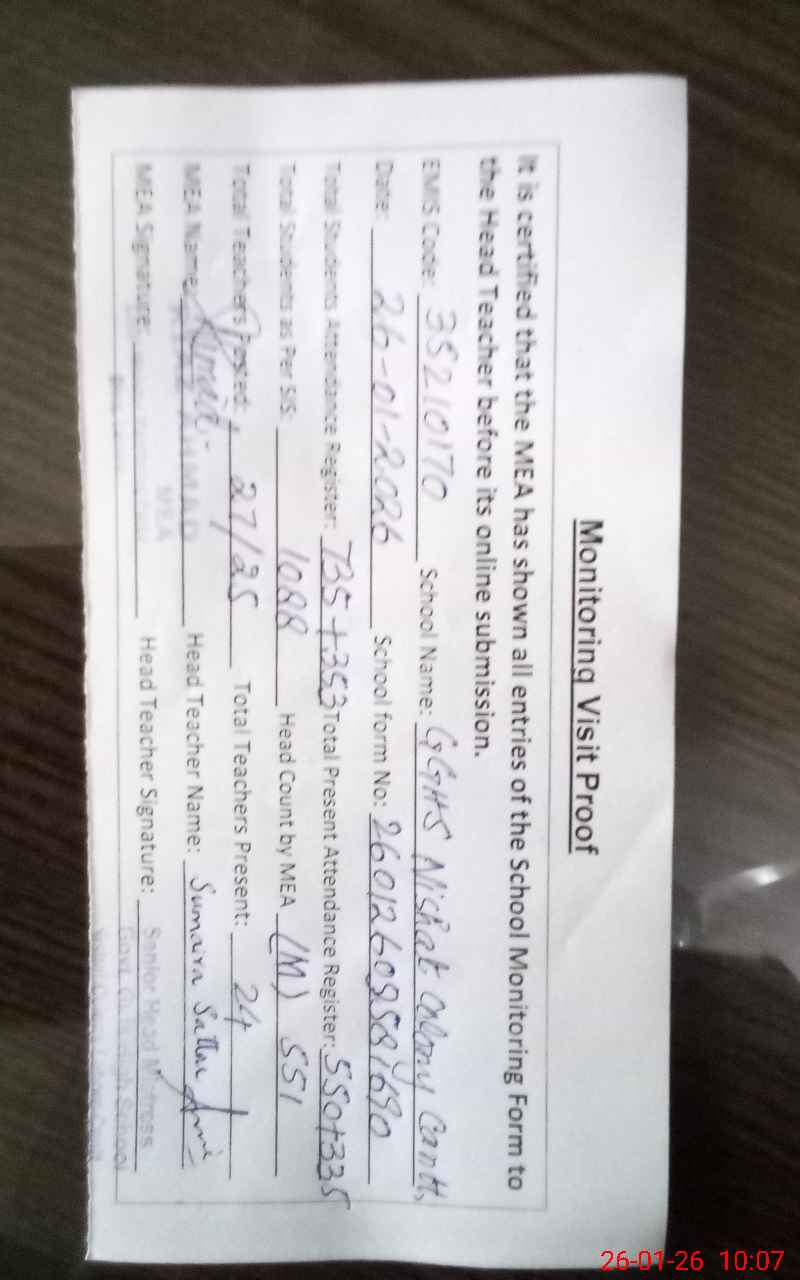 Monitoring Visit Proof
It is certified that the MEA has shown all entries of the School Monitoring Form to
the Head Teacher before its online submission.
EMIS Code: 35210170 School Name: GGHS Nishat Colony Cantt,
Date: 26-01-2026 School form No:
Total Students Attendance Register: 735+353 Total Present Attendance Register: 550+335
Total Students as Per SIS: 1088 Head Count by MEA (M) 551
Total Teachers Posted: 27/25 Total Teachers Present: 24
MEA Name: Head Teacher Name: Sumaira Sattar
MEA Signature: Head Teacher Signature:
MEA
Senior Head Mistress
Govt. Girls High School
26-01-26 10:07